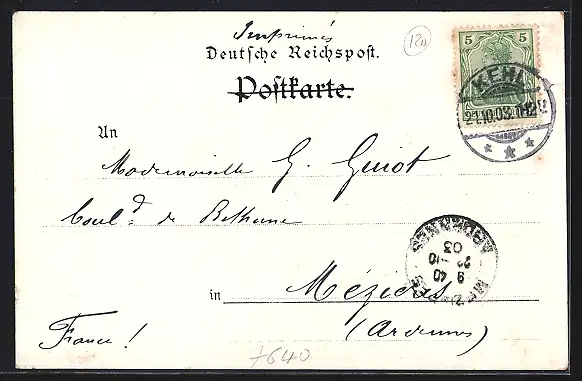 Imprimés
120
Deutsche Reichspost.
Postkarte.
5 5
KEHL
21.10.03. 11-12V.
An
Mademoiselle G. Guiot
Boul.d de Bethune
MEZIERES
9 40
10
03
ARDENNES
in Mézières
(Ardennes)
France!
7640